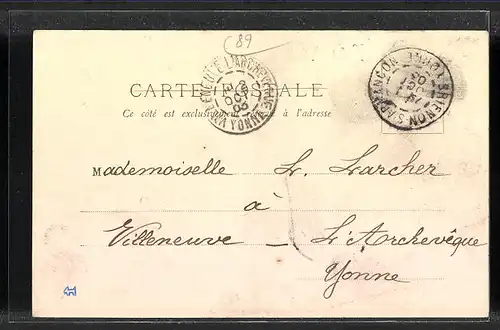 89
CARTE POSTALE
Ce côté est exclusivement à l'adresse
VILLENEUVE L'ARCHEVEQUE
YONNE
BRIENON-S-ARMANÇON
YONNE
Mademoiselle L. Larcher
à
Villeneuve - L'Archevêque
Yonne